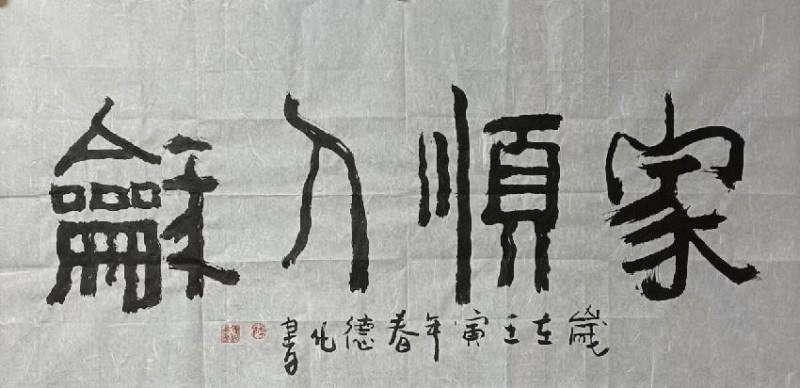 家順人龢
歲在壬寅年春德化書